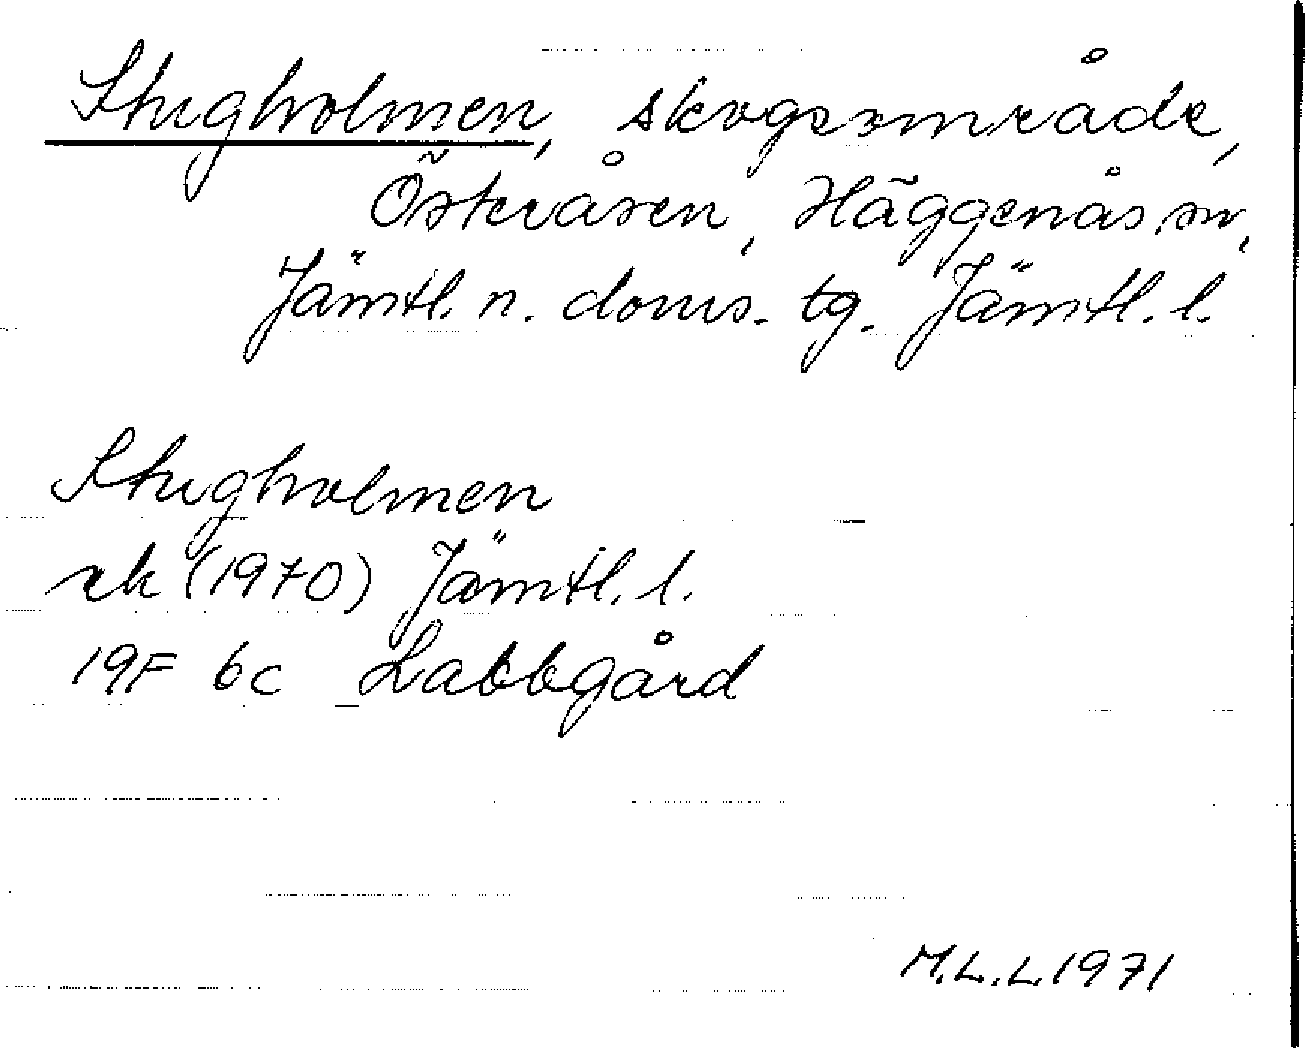 Stugholmen, skogsområde,
Österåsen, Häggenås sn,
Jämtl. n. doms. tg. Jämtl. l.
Stugholmen
ek (1970) Jämtl. l.
19F 6c Labbgård
M.L.L. 1971